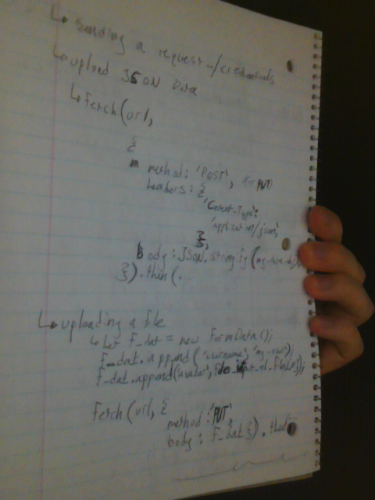 ↳ Sending a request w/credentials
↳ upload JSON Data
↳ Fetch(url,
{
method: 'POST', or PUT
headers: {
'Content-Type':
'application/json',
},
body: JSON.stringify(
}).then(.
↳ uploading a file
↳ let F_dat = new FormData();
F_dat.append('username',
F_dat.append('avatar',
Fetch(url, {
method: 'PUT',
body: F_dat }).then